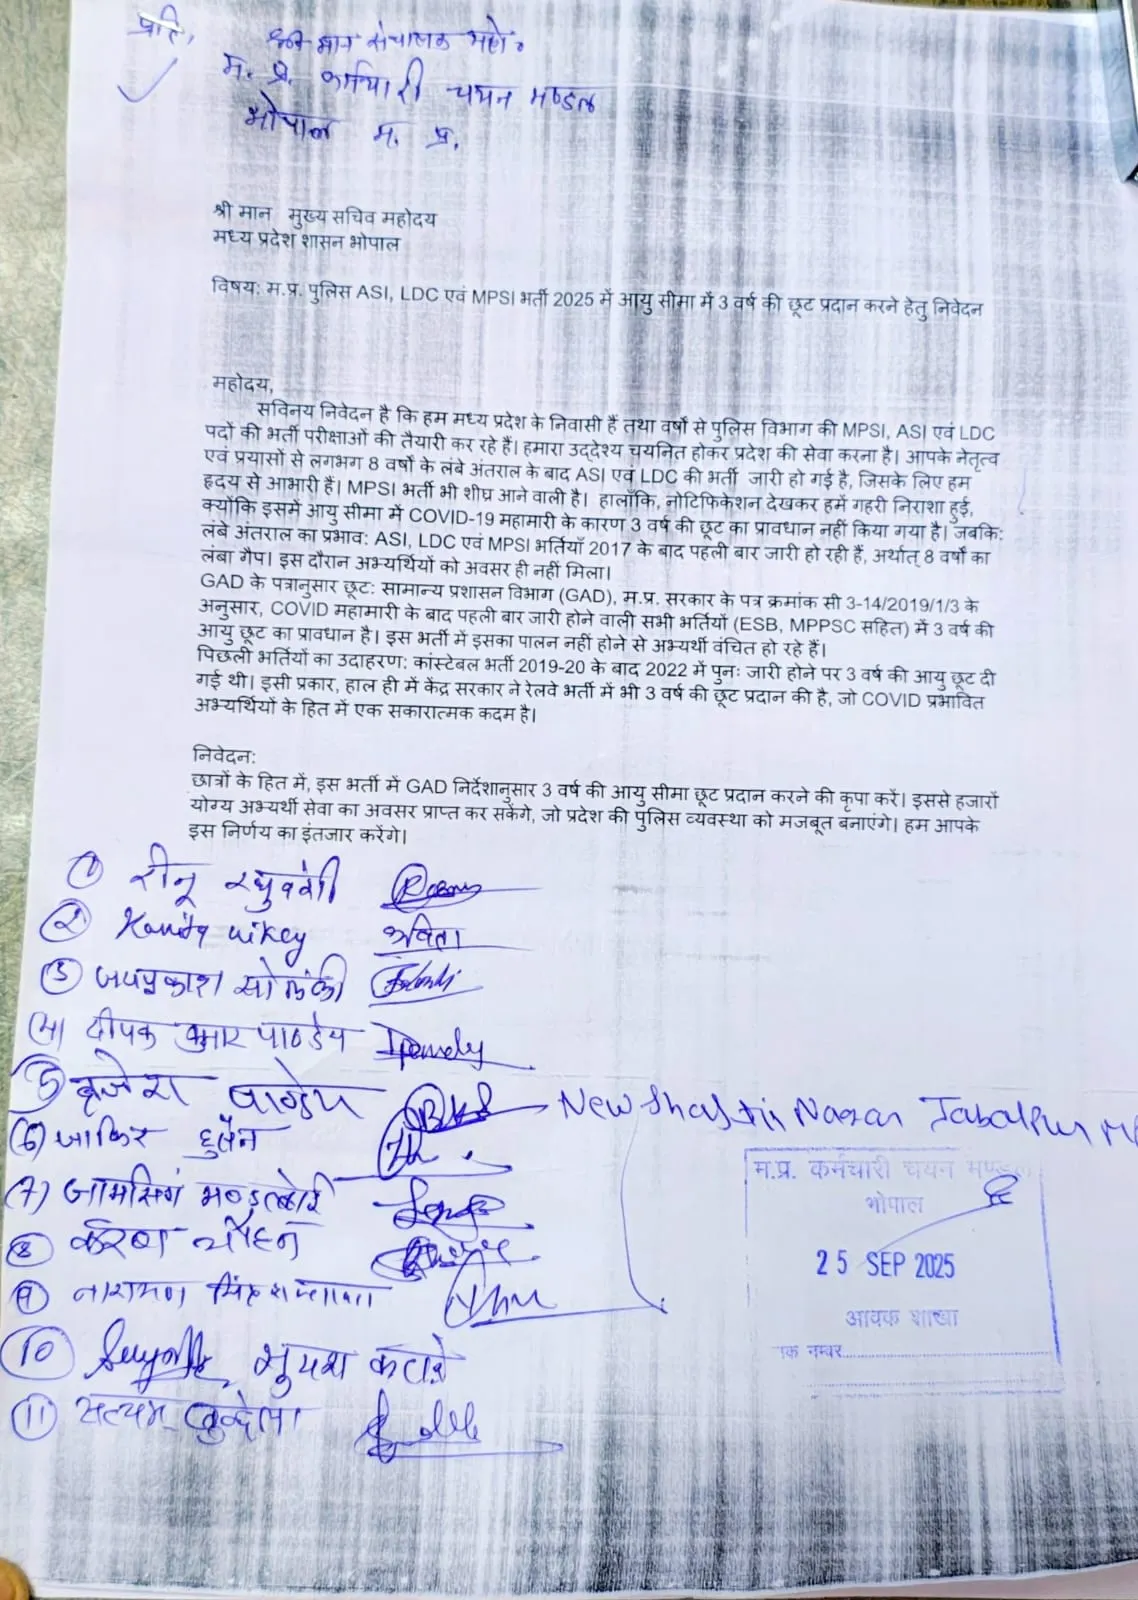 प्रति,
श्री मान संचालक महो०
म. प्र. कर्मचारी चयन मण्डल
भोपाल म. प्र.
श्री मान मुख्य सचिव महोदय
मध्य प्रदेश शासन भोपाल
विषय: म.प्र. पुलिस ASI, LDC एवं MPSI भर्ती 2025 में आयु सीमा में 3 वर्ष की छूट प्रदान करने हेतु निवेदन
महोदय,
सविनय निवेदन है कि हम मध्य प्रदेश के निवासी हैं तथा वर्षों से पुलिस विभाग की MPSI, ASI एवं LDC
पदों की भर्ती परीक्षाओं की तैयारी कर रहे हैं। हमारा उद्देश्य चयनित होकर प्रदेश की सेवा करना है। आपके नेतृत्व
एवं प्रयासों से लगभग 8 वर्षों के लंबे अंतराल के बाद ASI एवं LDC की भर्ती जारी हो गई है, जिसके लिए हम
हृदय से आभारी हैं। MPSI भर्ती भी शीघ्र आने वाली है। हालाँकि, नोटिफिकेशन देखकर हमें गहरी निराशा हुई,
क्योंकि इसमें आयु सीमा में COVID-19 महामारी के कारण 3 वर्ष की छूट का प्रावधान नहीं किया गया है। जबकि:
लंबे अंतराल का प्रभाव: ASI, LDC एवं MPSI भर्तियाँ 2017 के बाद पहली बार जारी हो रही हैं, अर्थात् 8 वर्षों का
लंबा गैप। इस दौरान अभ्यर्थियों को अवसर ही नहीं मिला।
GAD के पत्रानुसार छूट: सामान्य प्रशासन विभाग (GAD), म.प्र. सरकार के पत्र क्रमांक सी 3-14/2019/1/3 के
अनुसार, COVID महामारी के बाद पहली बार जारी होने वाली सभी भर्तियों (ESB, MPPSC सहित) में 3 वर्ष की
आयु छूट का प्रावधान है। इस भर्ती में इसका पालन नहीं होने से अभ्यर्थी वंचित हो रहे हैं।
पिछली भर्तियों का उदाहरण: कांस्टेबल भर्ती 2019-20 के बाद 2022 में पुनः जारी होने पर 3 वर्ष की आयु छूट दी
गई थी। इसी प्रकार, हाल ही में केंद्र सरकार ने रेलवे भर्ती में भी 3 वर्ष की छूट प्रदान की है, जो COVID प्रभावित
अभ्यर्थियों के हित में एक सकारात्मक कदम है।
निवेदन:
छात्रों के हित में, इस भर्ती में GAD निर्देशानुसार 3 वर्ष की आयु सीमा छूट प्रदान करने की कृपा करें। इससे हजारों
योग्य अभ्यर्थी सेवा का अवसर प्राप्त कर सकेंगे, जो प्रदेश की पुलिस व्यवस्था को मजबूत बनाएंगे। हम आपके
इस निर्णय का इंतजार करेंगे।
(1) रीनू रघुवंशी
(2) Kavita uikey कविता
(3) जयप्रकाश सोलंकी
(4) दीपक कुमार पाण्डेय Pandey
(5) बृजेश पाण्डेय New Shastri Nagar Jabalpur MP
(6) जाकिर हुसैन
(7) जामसिंग मण्डलोई
(8) करण चौहान
(9) नारायण सिंह
(10) सुयश कटारे
(11) सत्यम बुन्देला
म.प्र. कर्मचारी चयन मण्डल
भोपाल
25 SEP 2025
आवक शाखा
क नम्बर